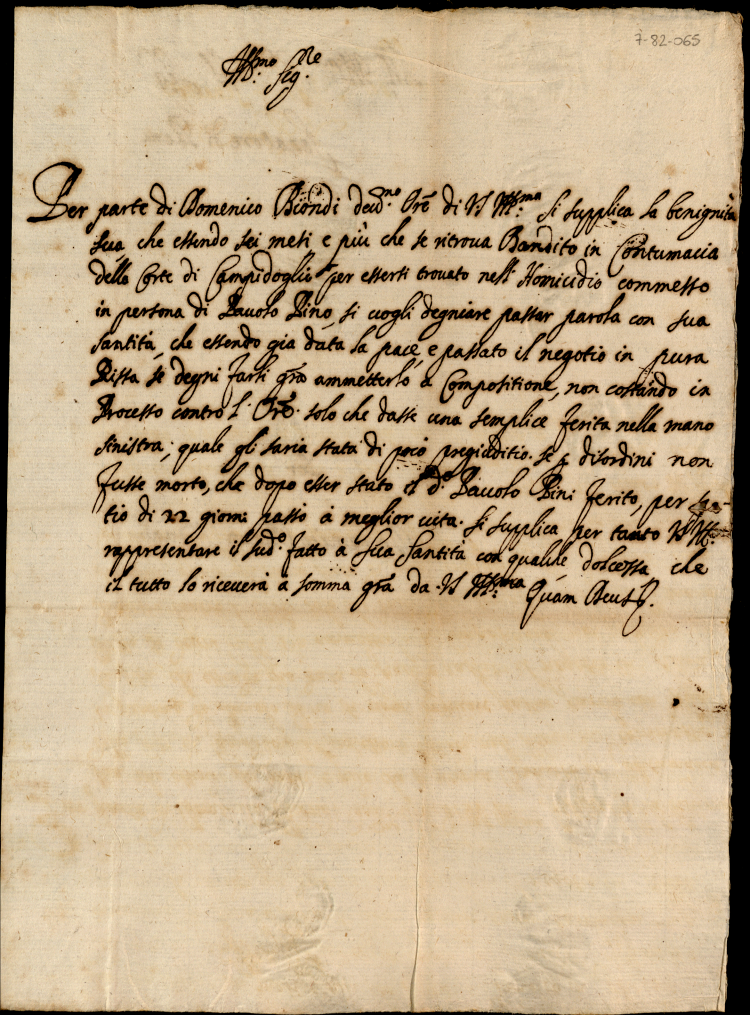 7-82-065
Ill.mo Sig.re
Per parte di Domenico Biondi deud.no Ore di VS Ill.ma si supplica la benignità
sua che essendo sei mesi e più che se ritroua Bandito in Contumacia
della Corte di Campidoglio per essersi trouato nell' Homicidio commesso
in persona di Pauolo Pino, si uogli degniare passar parola con sua
santità, che essendo gia data la pace, e passato il negotio in pura
Rissa, se degni farli gra ammetterlo à Compositione, non costando in
Processo contro l' Ore solo che dasse una semplice ferita nella mano
sinistra, quale gli saria stata di poco pregiuditio se p disordini non
fusse morto, che dopo esser stato il d.o Pauolo Pini ferito, per spa-
tio di 22 giorni passò à meglior uita. Si supplica per tanto VS Ill.
rappresentare il sud.o fatto à Sua Santità con qualche dolcessa che
il tutto lo riceuerà a somma gra da VS Ill.ma Quam Deus